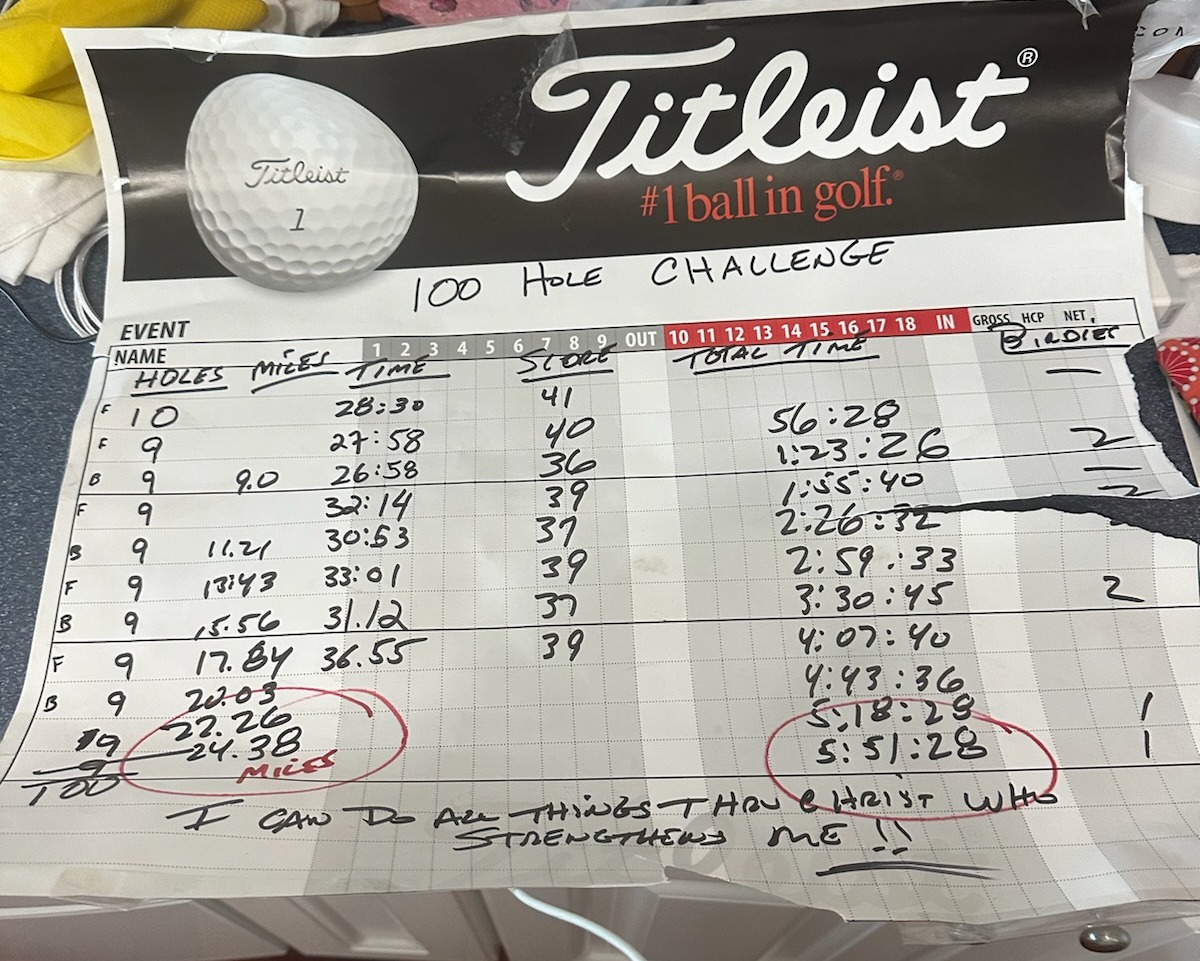 CON
Titleist®
Titleist
1
#1 ball in golf.®
100 HOLE CHALLENGE
EVENT
NAME 1 2 3 4 5 6 7 8 9 OUT 10 11 12 13 14 15 16 17 18 IN GROSS HCP NET
HOLES MILES TIME SCORE TOTAL TIME BIRDIES
F 10 28:30 41 —
F 9 27:58 40 56:28
B 9 9.0 26:58 36 1:23:26 2
F 9 32:14 39 1:55:40 —
B 9 11.21 30:53 37 2:26:32 2
F 9 13:43 33:01 39 2:59:33
B 9 15.56 31.12 37 3:30:45 2
F 9 17.84 36.55 39 4:07:40
B 9 20.03 4:43:36
9 22.26 5:18:28 1
9 24.38 5:51:28 1
100 MILES
I CAN DO ALL THINGS THRU CHRIST WHO
STRENGTHENS ME!!